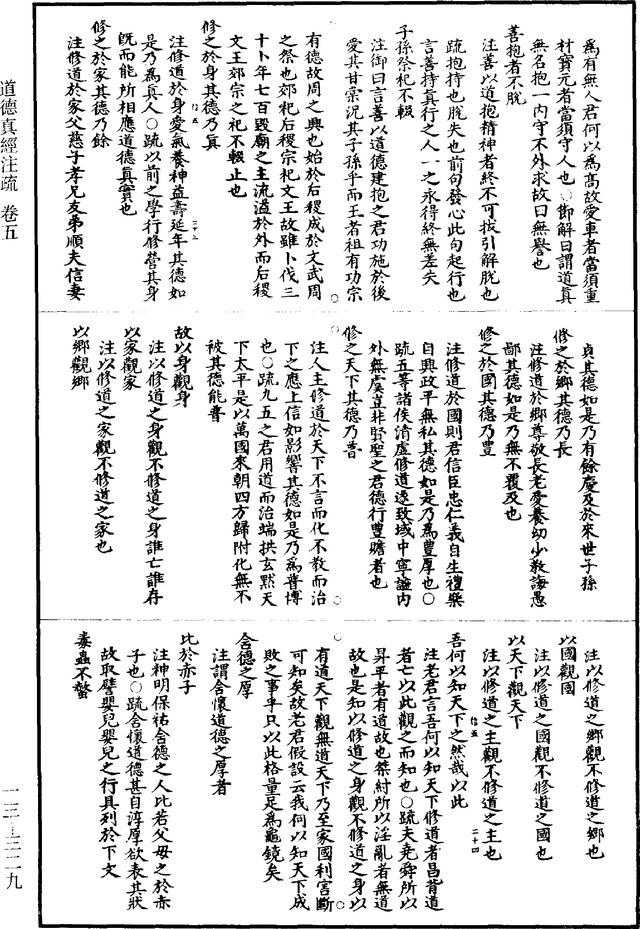 為有無人君何以為高故愛車者當須重
材寶元者當須守人也○御解曰謂道真
無名抱一內守不外求故曰無譽也
善抱者不脫
注善以道抱精神者終不可拔引解脫也
疏抱持也脫失也前句發心此句起行也
言善持真行之人一一之永得終無差失
子孫祭祀不輟
注御曰言善以道德建抱之君功施於後
愛其甘棠況其子孫乎而王者祖有功宗
有德故周之興也始於后稷成於文武周
之祭也郊祀后稷宗祀文王故雖卜伐三
十卜年七百毀廟之主流溢於外而后稷
文王郊宗之祀不輟止也
修之於身其德乃真
注修道於身愛氣養神益壽延年其德如
是乃為真人○疏以前之學行修營其身
既而能所相應道德真實也
修之於家其德乃餘
注修道於家父慈子孝兄友弟順夫信妻
貞其德如是乃有餘慶及於來世子孫
修之於鄉其德乃長
注修道於鄉尊敬長老愛養幼少教誨愚
鄙其德如是乃無不覆及也
修之於國其德乃豐
注修道於國則君信臣忠仁義自生禮樂
自興政平無私其德如是乃為豐厚也○
疏五等諸侯清虛修道遠致域中寧謐內
外無虞豈非賢聖之君德行豐贍者也
修之天下其德乃普
注人主修道於天下不言而化不教而治
下之應上信如影響其德如是乃為普博
也○疏九五之君用道而治端拱玄默天
下太平是以萬國來朝四方歸附化無不
被其德能普
故以身觀身
注以修道之身觀不修道之身誰亡誰存
以家觀家
注以修道之家觀不修道之家也
以鄉觀鄉
注以修道之鄉觀不修道之鄉也
以國觀國
注以修道之國觀不修道之國也
以天下觀天下
注以修道之主觀不修道之主也
吾何以知天下之然哉以此
注老君言吾何以知天下修道者昌背道
者亡以此觀之而知也○疏夫堯舜所以
昇平者有道故也桀紂所以淫亂者無道
故也是知以修道之身觀不修道之身以
有道天下觀無道天下乃至家國利害斷
可知矣故老君假設云我何以知天下成
敗之事乎只以此格量足為龜鏡矣
含德之厚
注謂含懷道德之厚者
比於赤子
注神明保祐含德之人比若父母之於赤
子也○疏含懷道德甚自淳厚欲表其狀
故取譬嬰兒嬰兒之行具列於下文
毒蟲不螫
道德真經注疏 卷五
一三—三二九